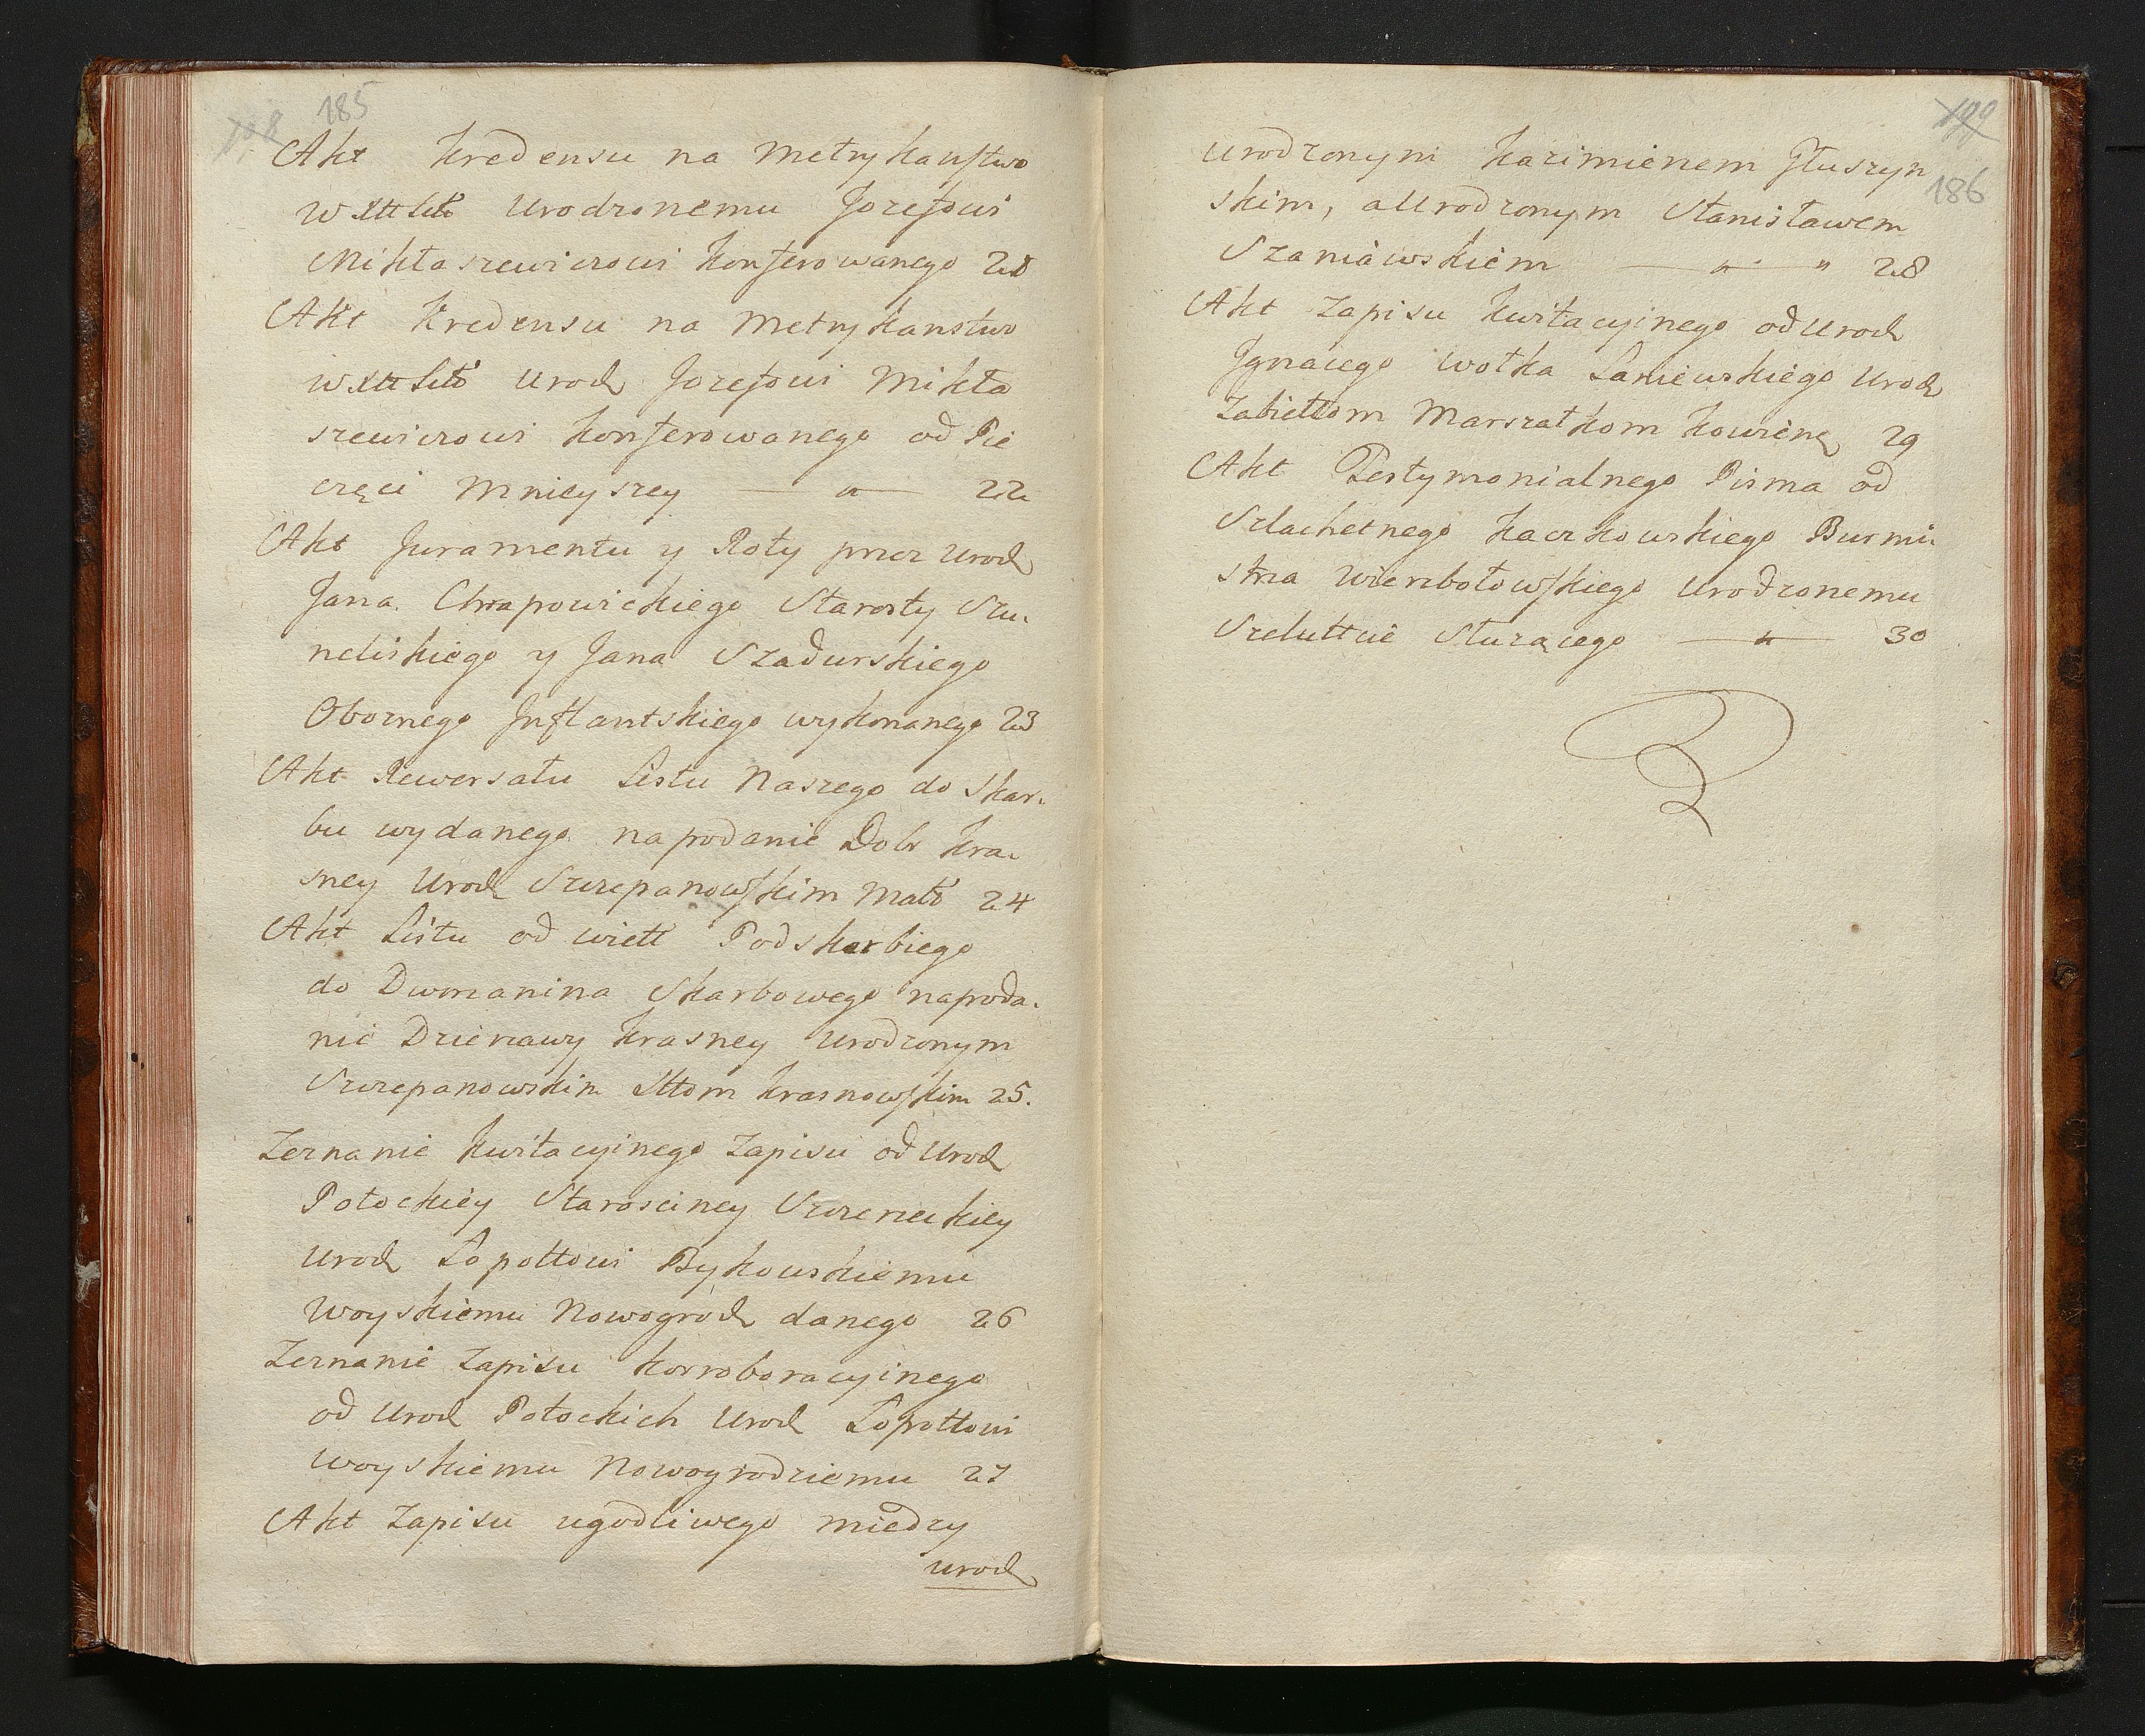 185
Akt Kredensu na Metrykanstwo
W XLitt Urodzonemu Jozefowi
Mikłaszewiczowi konferowanego 21
Akt Kredensu na Metrykanstwo
W XLitt Urod Jozefowi Mikła
szewiczowi konferowanego od Pie
częci Mnieyszey — „ — 22
Akt Juramentu y Roty przez Urod
Jana Chrapowickiego Starosty Stu-
neliskiego y Jana Szadurskiego
Oboznego Inflantskiego wykonanego 23
Akt Rewersału Listu Naszego do Skar-
bu wydanego na podanie Dobr Kra-
sney Urod Szczepanowskim Małż 24
Akt Listu od Wiell Podskarbiego
do Dworzanina Skarbowego na poda-
nie Dzierzawy Krasney Urodzonym
Szczepanowskim Sttom Krasnowskim 25.
Zeznanie Kwitacyinego Zapisu od Urod
Potockiey Starosciney Szczerzeckiey
Urod Łopottowi Bykowskiemu
Woyskiemu Nowogrod danego 26
Zeznanie Zapisu Korroboracyinego
od Urod Potockich Urod Łopottowi
Woyskiemu Nowogrodziemu 27
Akt Zapisu ugodliwego miedzy
Urod
199
186
Urodzonym Kazimierzem Głuszyn
skim, a Urodzonym Stanisławem
Szaniawskiem — „ „ 28
Akt Zapisu Kwitacyinego od Urod
Ignacego Wołka Łaniewskiego Urod
Zabiełłom Marszałkom Kowień 29
Akt Testymonialnego Pisma od
Szlachetnego Kaczkowskiego Burmi
strza Wierzbołowskiego Urodzonemu
Szeluttcie Służącego — „ — 30